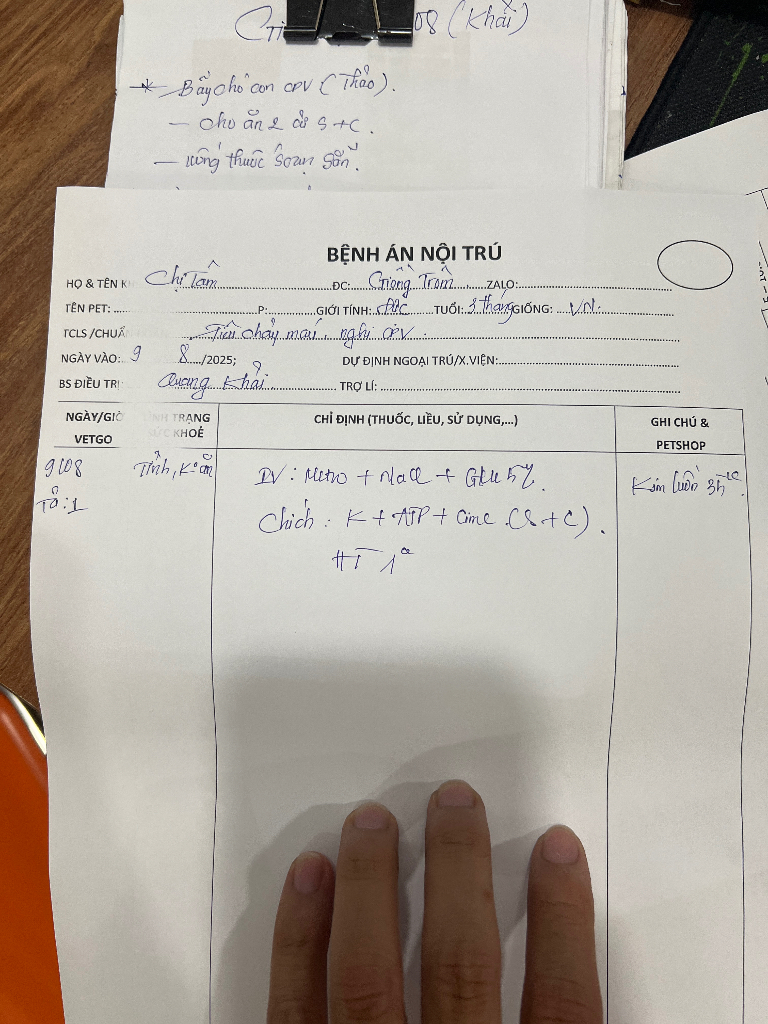 08 (Khải)
* Bẩy chó con CPV (Thảo).
– cho ăn 2 cử S+C.
– uống thuốc soạn sẵn.
BỆNH ÁN NỘI TRÚ
HỌ & TÊN K Chị Tâm ĐC: Giồng Trôm ZALO:
TÊN PET: P: GIỚI TÍNH: Đực TUỔI: 3 tháng GIỐNG: VN.
TCLS /CHUẨ Tiêu chảy máu, nghi CPV.
NGÀY VÀO: 9 8 /2025; DỰ ĐỊNH NGOẠI TRÚ/X.VIỆN:
BS ĐIỀU TRỊ Quang Khải TRỢ LÍ:
NGÀY/GIỜ NH TRẠNG CHỈ ĐỊNH (THUỐC, LIỀU, SỬ DỤNG,...) GHI CHÚ &
VETGO C KHOẺ PETSHOP
9/08 Tỉnh, K ăn IV: Metro + NaCl + Glu 5% Kim luồn
Tô:1 Chích: K + ATP + Cime (S + C).
HT 1cc